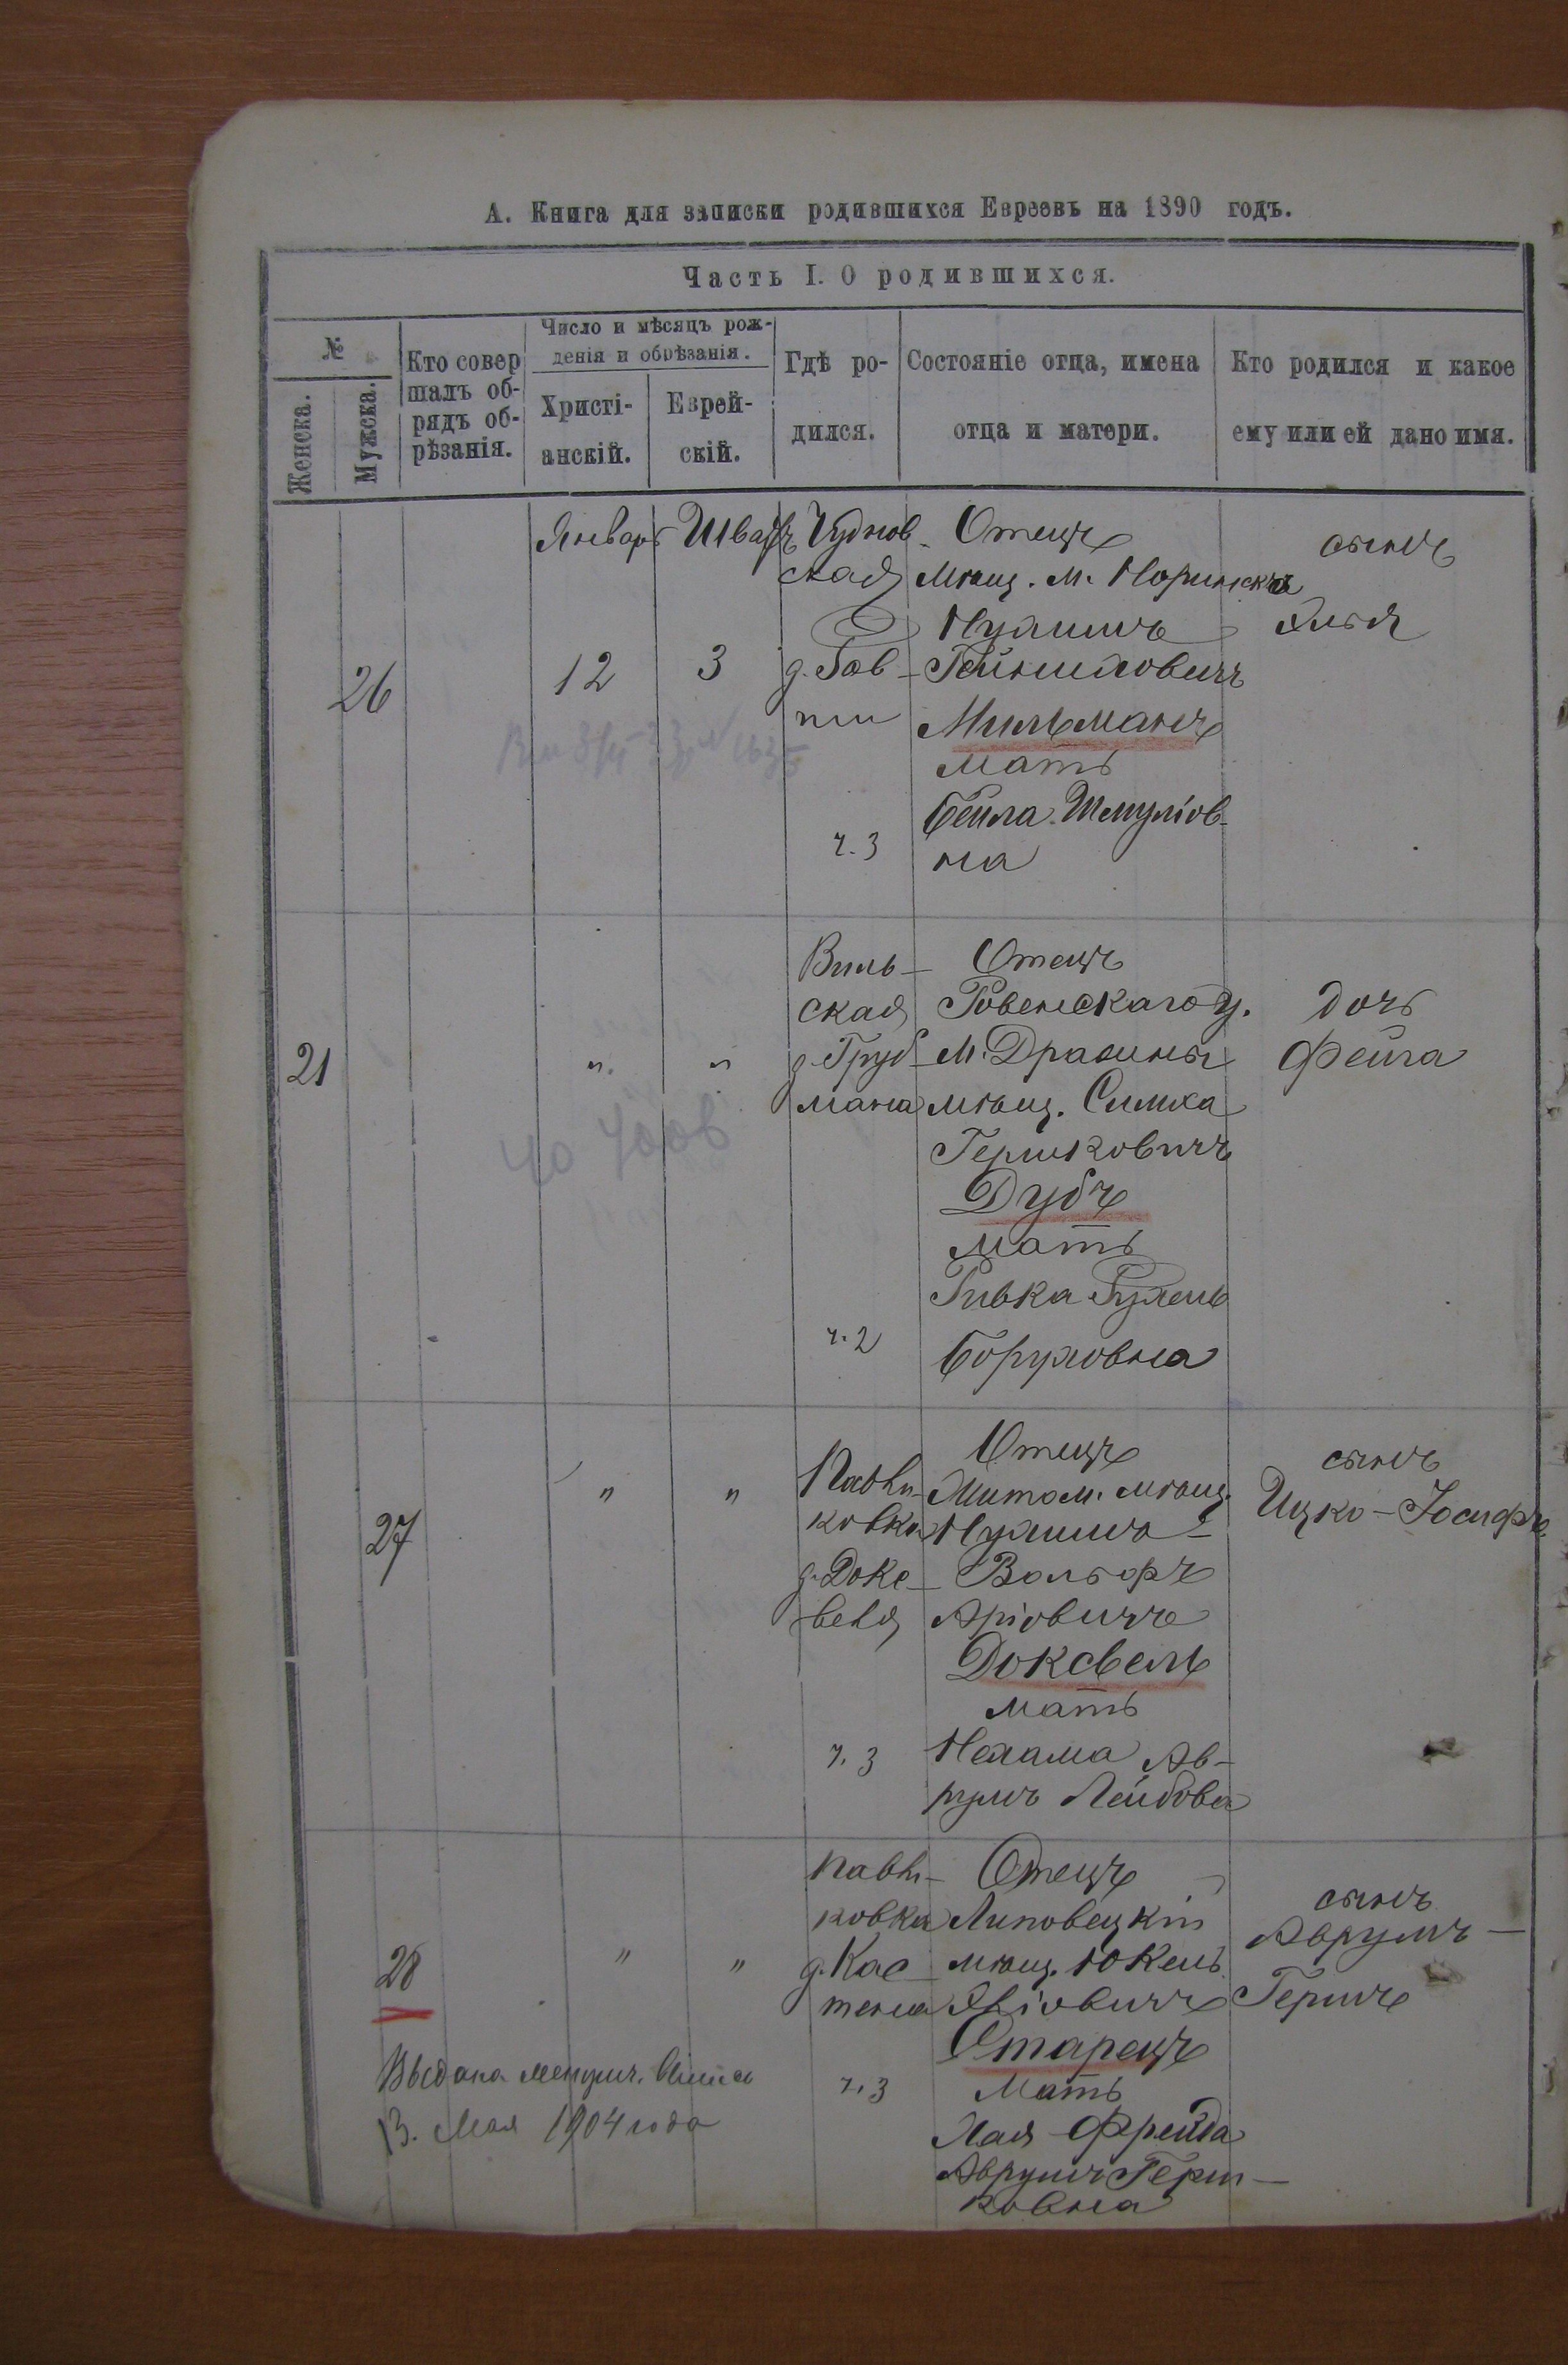 А. Книга для записки родившихся Евреевъ на 1890 годъ.
Часть I. О родившихся.
№
Женска.
Мужска.
Кто совер
шалъ об-
рядъ об-
рѣзанія.
Число и мѣсяцъ рож-
денія и обрѣзанія.
Христі-
анскій.
Еврей-
скій.
Гдѣ ро-
дился.
Состояніе отца, имена
отца и матери.
Кто родился и какое
ему или ей дано имя.
26
Январь
12
Шватъ
3
Чуднов-
ская
д. Гав-
ч. 3
Отецъ
мѣщ. м. Норинска
Нухимъ
Мильманъ
мать
Бейла Шмуліов-
на
сынъ
Эля
21
"
"
Виль-
ская
д. Груб-
мана
ч. 2
Отецъ
Ровенскаго у.
м.
мѣщ. Симха
Гершковичъ
Дубъ
мать
Ривка
Боруховна
дочь
Фейга
27
"
"
Павли-
ковка
д. Докс-
веля
ч. 3
Отецъ
Житом. мѣщ.
Нухимъ-
Вольфъ
Аріовичъ
Доксвель
мать
Нехама Ав-
румъ Лейбова
сынъ
Ицко-Іосифъ
28
"
"
Павли-
ковка
д. Кас-
тена
ч. 3
Отецъ
Липовецкій
мѣщ. Юкель
Старецъ
мать
Хая Фрейда
Аврумъ Герш-
ковна
сынъ
Аврумъ-
Гершъ
Выдана
13. Мая 1904 года